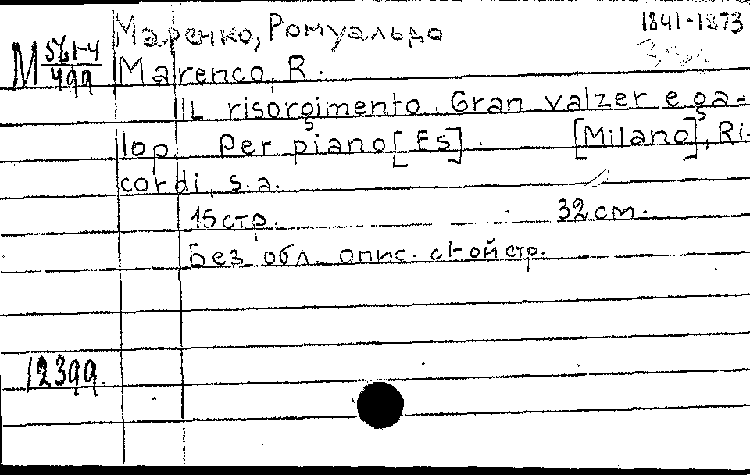 Маренко, Ромуальдо 1841-1873
М 561-4/499 Marenco, R.
IL risorgimento. Gran valzer e ga-
lop per piano [Es]. [Milano], Ri-
cordi, s.a.
15 стр. 32 см.
Без обл. опис. с 1-ой стр.
12399.